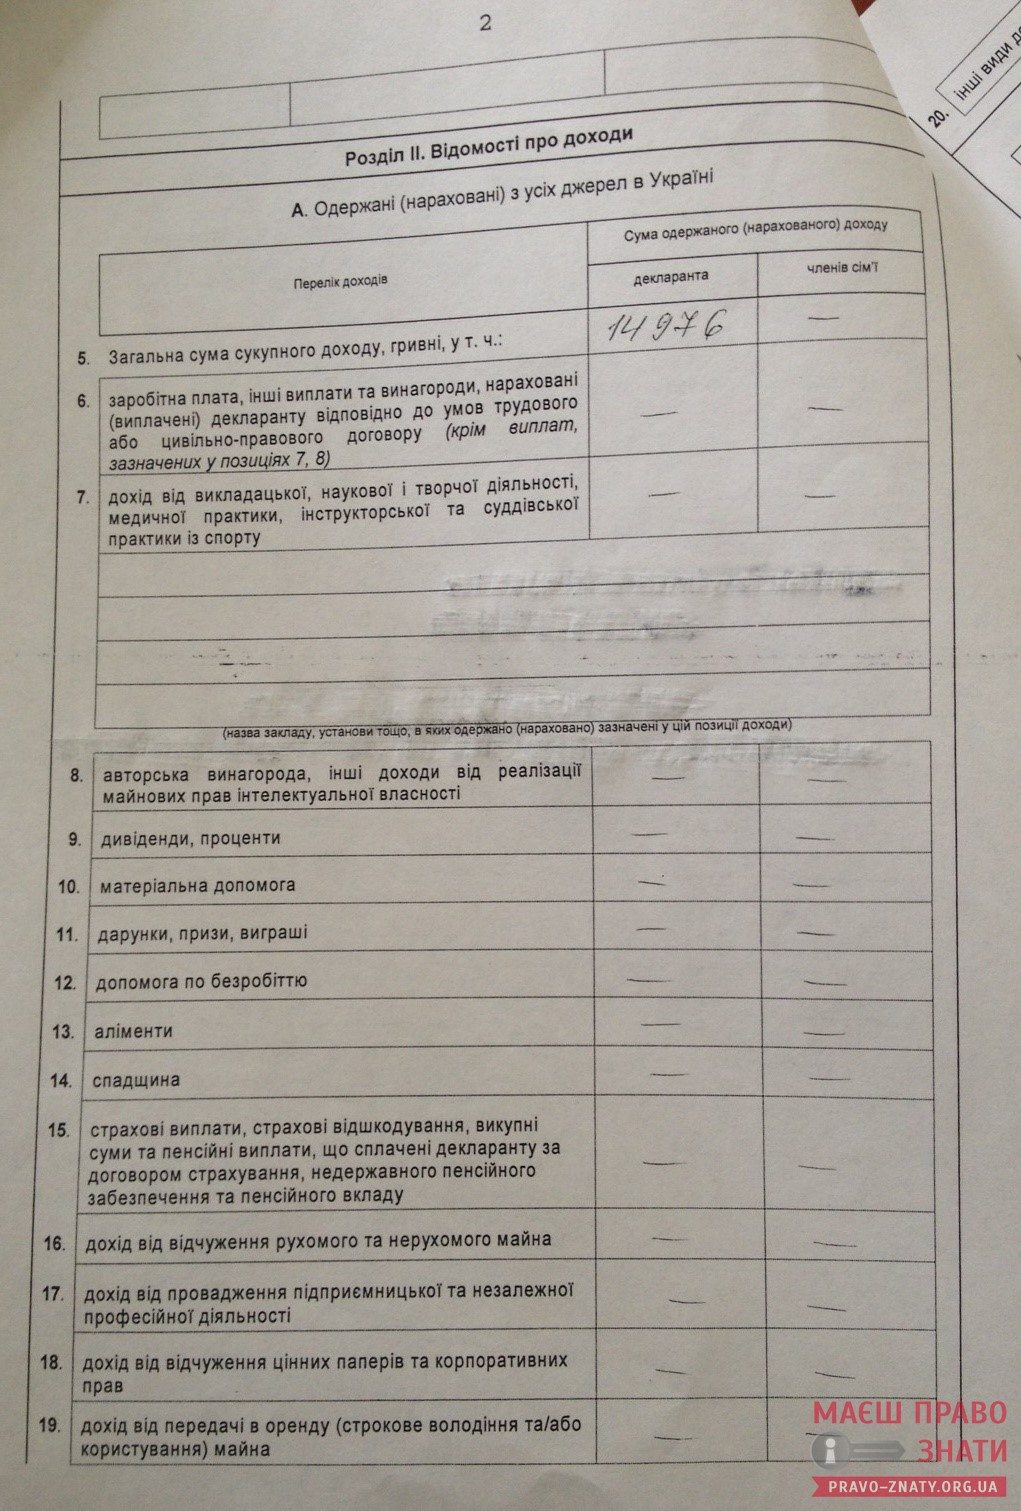 2
20. інші види
Розділ II. Відомості про доходи
А. Одержані (нараховані) з усіх джерел в Україні
Перелік доходів
Сума одержаного (нарахованого) доходу
декларанта
членів сім'ї
5. Загальна сума сукупного доходу, гривні, у т. ч.:
14976 —
6. заробітна плата, інші виплати та винагороди, нараховані — —
(виплачені) декларанту відповідно до умов трудового
або цивільно-правового договору (крім виплат,
зазначених у позиціях 7, 8)
7. дохід від викладацької, наукової і творчої діяльності, — —
медичної практики, інструкторської та суддівської
практики із спорту
(назва закладу, установи тощо, в яких одержано (нараховано) зазначені у цій позиції доходи)
8. авторська винагорода, інші доходи від реалізації — —
майнових прав інтелектуальної власності
9. дивіденди, проценти — —
10. матеріальна допомога — —
11. дарунки, призи, виграші — —
12. допомога по безробіттю — —
13. аліменти — —
14. спадщина — —
15. страхові виплати, страхові відшкодування, викупні — —
суми та пенсійні виплати, що сплачені декларанту за
договором страхування, недержавного пенсійного
забезпечення та пенсійного вкладу
16. дохід від відчуження рухомого та нерухомого майна — —
17. дохід від провадження підприємницької та незалежної — —
професійної діяльності
18. дохід від відчуження цінних паперів та корпоративних — —
прав
19. дохід від передачі в оренду (строкове володіння та/або — —
користування) майна
МАЄШ ПРАВО
ЗНАТИ
PRAVO-ZNATY.ORG.UA